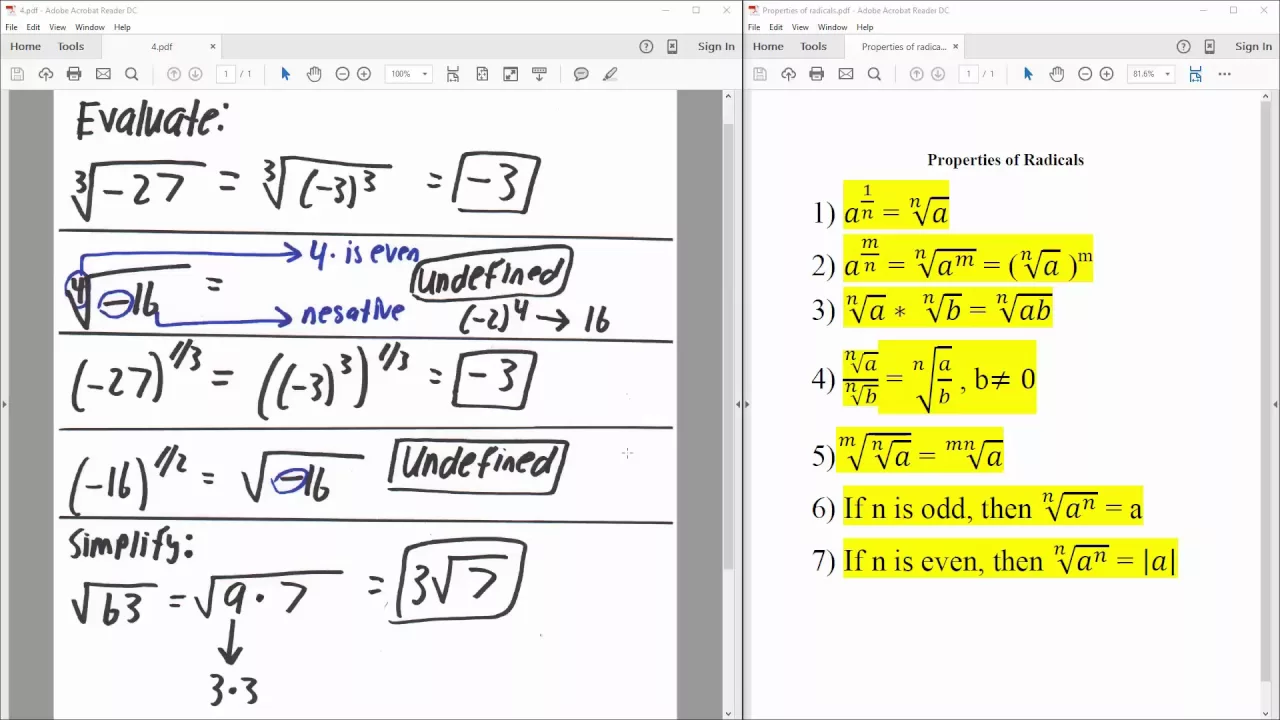 4.pdf - Adobe Acrobat Reader DC
File Edit View Window Help
Home Tools 4.pdf × Sign In
1 / 1 100%
Evaluate:
∛-27 = ∛(-3)³ = -3
4. is even
∜-16 = Undefined
negative (-2)⁴ → 16
(-27)^1/3 = ((-3)³)^1/3 = -3
(-16)^1/2 = √-16 Undefined
Simplify:
√63 = √9·7 = 3√7
3·3
Properties of radicals.pdf - Adobe Acrobat Reader DC
File Edit View Window Help
Home Tools Properties of radica... × Sign In
1 / 1 81.6%
Properties of Radicals
1) a^(1/n) = ⁿ√a
2) a^(m/n) = ⁿ√a^m = (ⁿ√a )^m
3) ⁿ√a * ⁿ√b = ⁿ√ab
4) ⁿ√a/ⁿ√b = ⁿ√(a/b) , b≠ 0
5) ᵐ√ⁿ√a = ᵐⁿ√a
6) If n is odd, then ⁿ√aⁿ = a
7) If n is even, then ⁿ√aⁿ = |a|